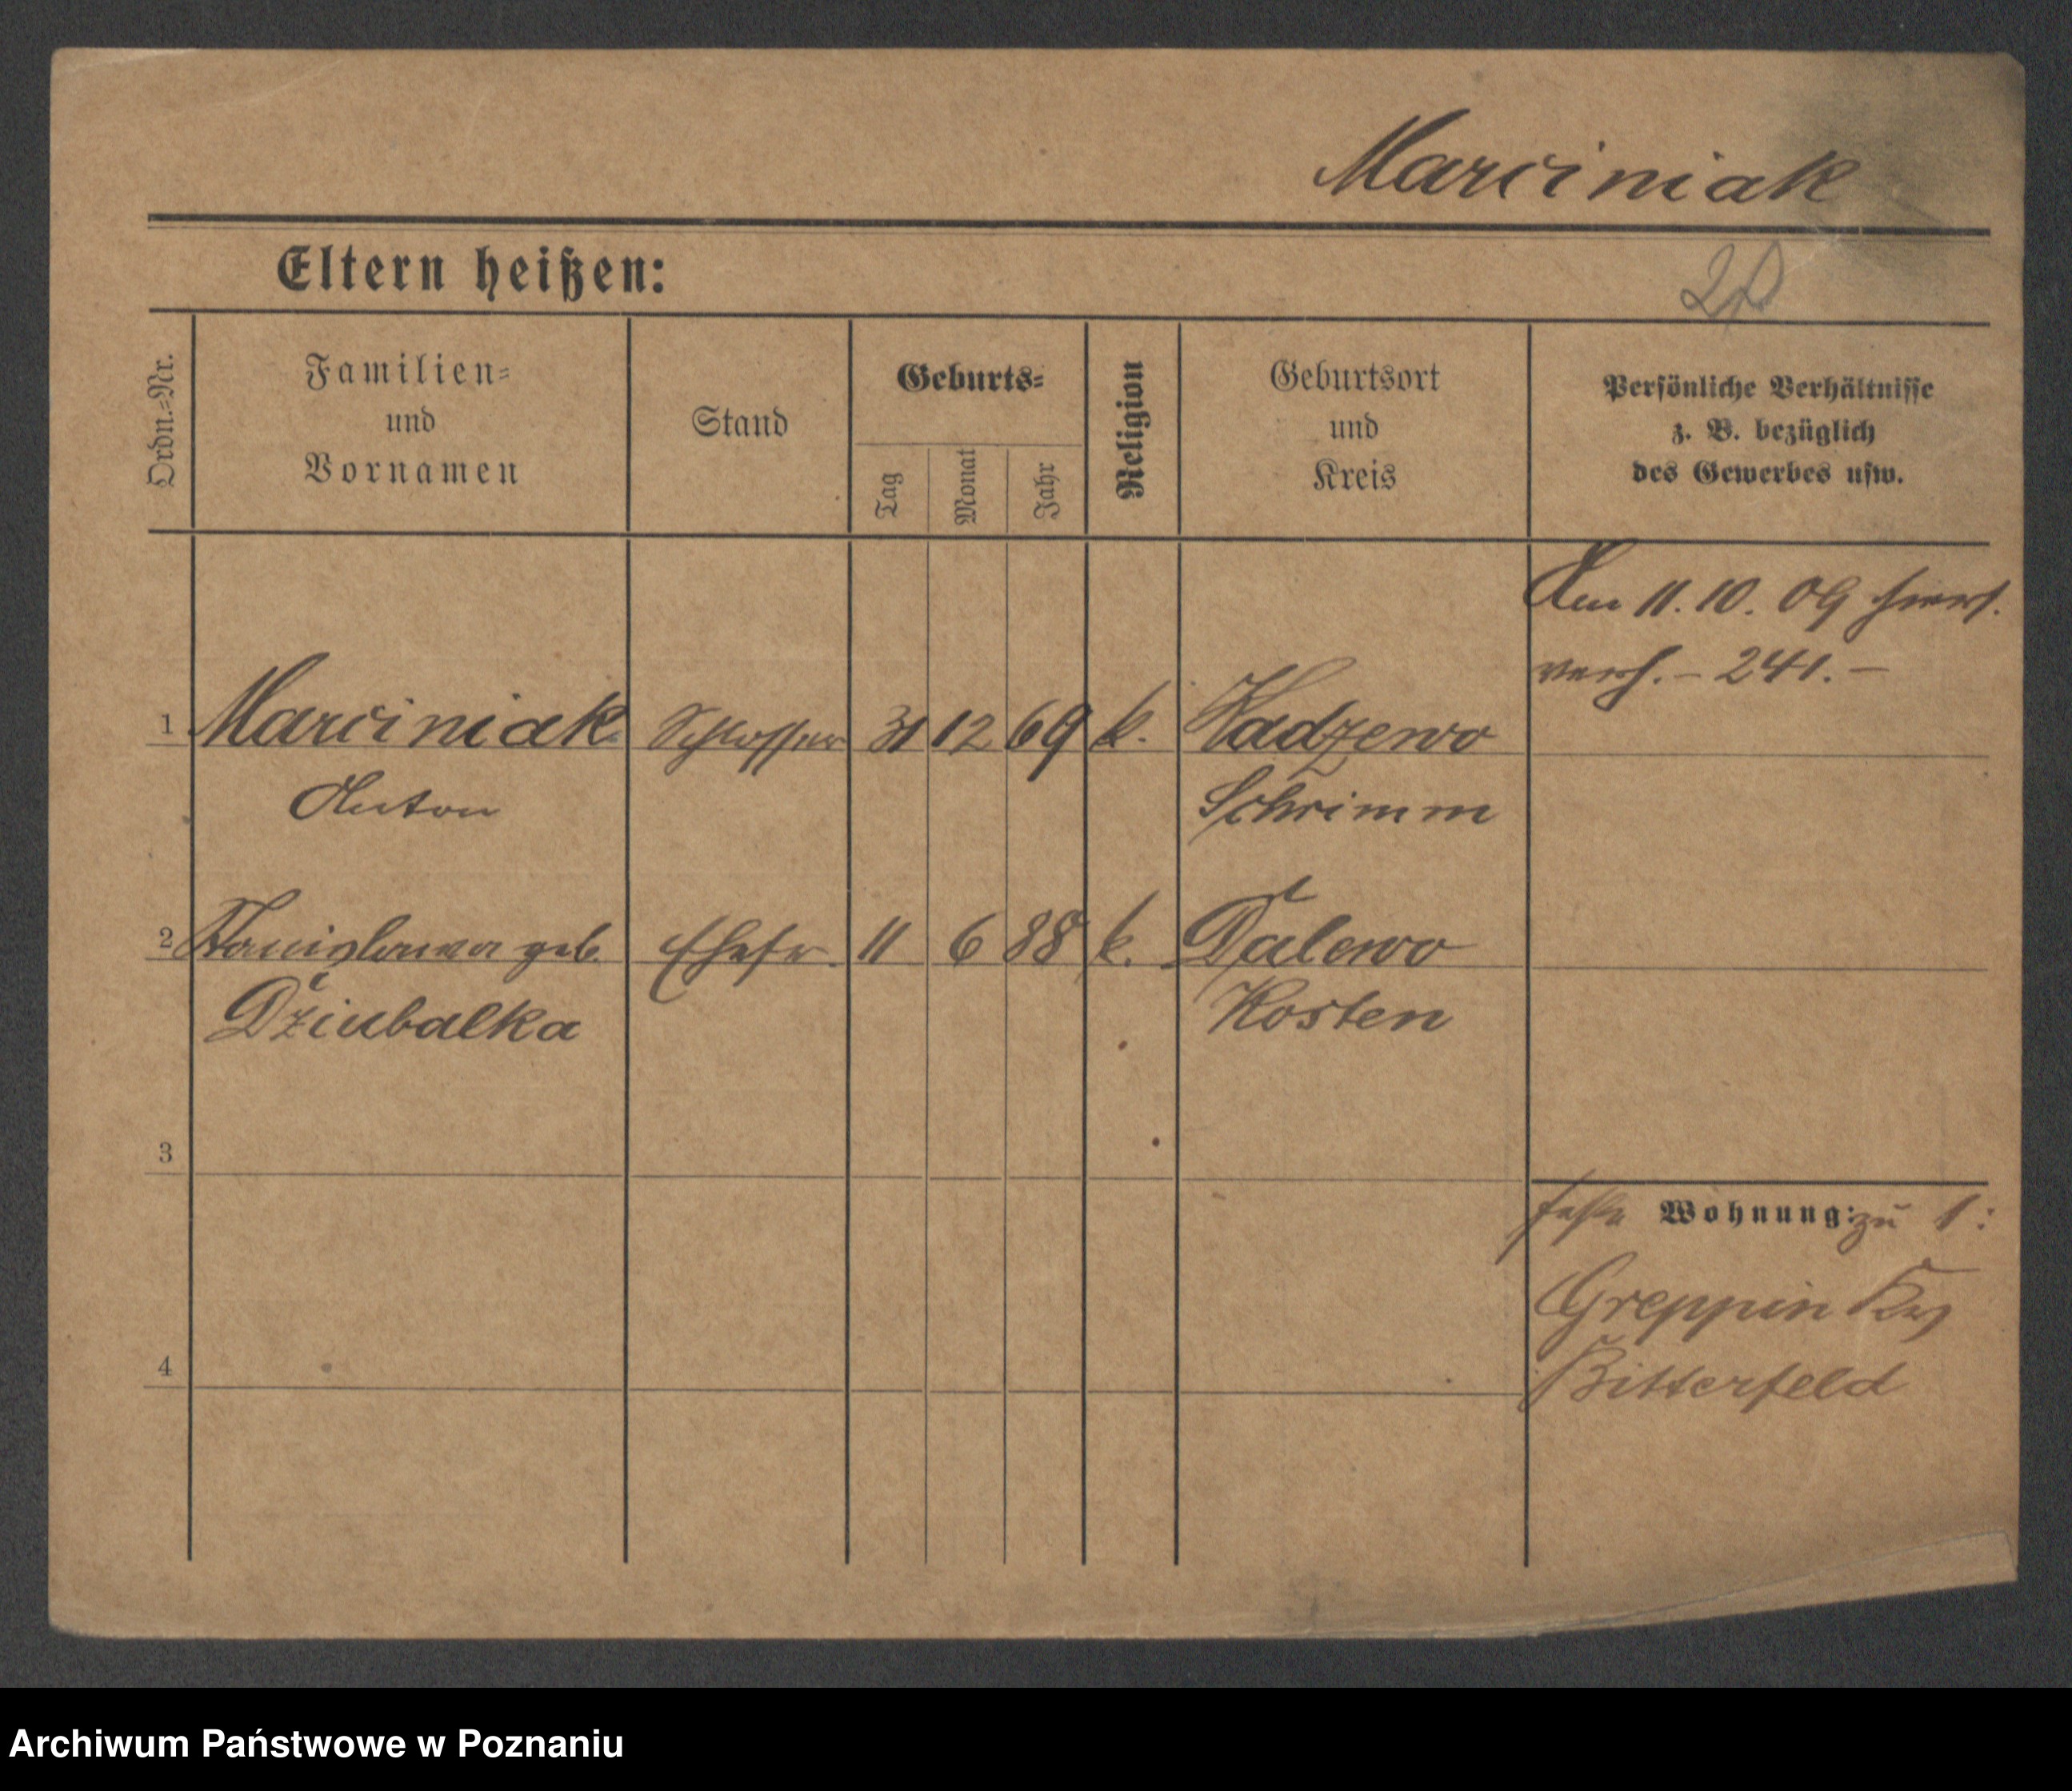 Marciniak
Eltern heißen:
Ordn.=Nr.
Familien=
und
Vornamen
Stand
Geburts=
Tag
Monat
Jahr
Religion
Geburtsort
und
Kreis
Persönliche Verhältnisse
z. B. bezüglich
des Gewerbes usw.
Am 11. 10. 09 hiers.
verh. – 241. –
1 Marciniak Schlosser 31 12 69 k. Kadzewo
Anton Schrimm
2 Stanislawa geb. Ehefr. 11 6 88 k. Dalewo
Dziubalka Kosten
3
Wohnung: zu 1:
Greppin Krs
4 Bitterfeld
Archiwum Państwowe w Poznaniu